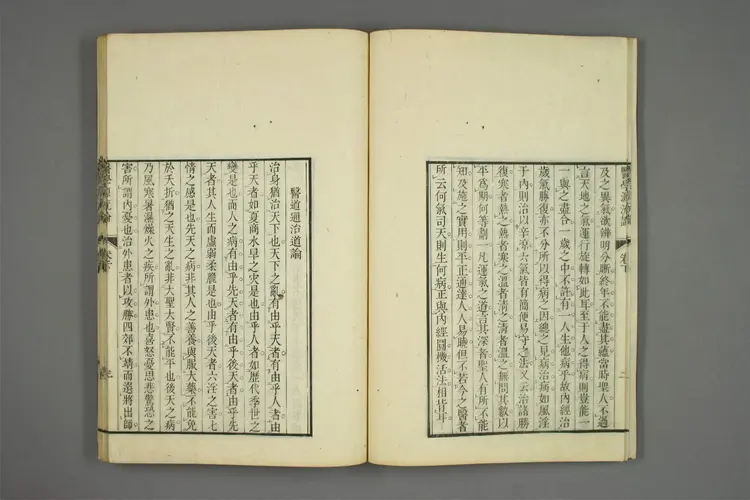 及之異氣欲辨明分晰終年不能盡其蘊當時聖人不過
言天地之氣運行旋轉如此耳至于人之得病則豈能一
一與之盡合一歲之中不許有一人生他病乎故內經治
歲氣勝復亦不分所以得病之因總之見病治病如風淫
于內則治以辛涼六氣皆有簡便易守之法又云治諸勝
復寒者熱之熱者寒之溫者清之清者溫之無問其數以
平爲期何等劃一凡運氣之道言其深者聖人有所不能
知及施之實用則平正通達人人易曉但不若今之醫者
所云何氣司天則生何病正與內經圓機活法相背耳
醫學源流論 卷下 二
醫道通治道論
治身猶治天下也天下之亂有由乎天者有由乎人者由
乎天者如夏商水旱之災是也由乎人者如歷代季世之
變是也而人之病有由乎先天者有由乎後天者由乎先
天者其人生而虛弱柔脆是也由乎後天者六淫之害七
情之感是也先天之病非其人之善養與服大藥不能免
於夭折猶之天生之亂非大聖大賢不能平也後天之病
乃風寒暑濕燥火之疾所謂外患也喜怒憂思悲驚恐之
害所謂內憂也治外患者以攻勝四郊不靖而選將出師
醫學源流論 卷下